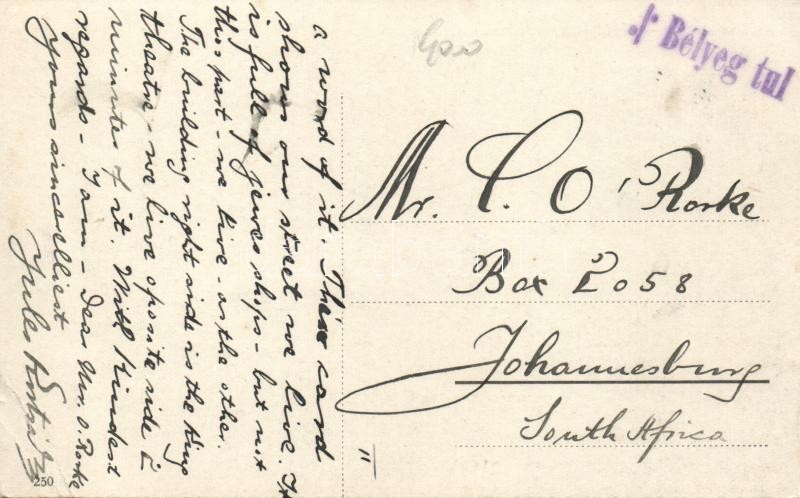 a word of it. This card
shows our street we live. It
is full of jewes shops - but not
this part - we live - on the other.
The building right side is the Kings
theatre - we live oposite side 2
minutes of it. With Kindest
regards - I am - Dear Mr. O Rorke
yours sincerelliest
Jules
250
Bélyeg tul
Mr. C. O'Rorke
Box 2058
Johannesburg
South Africa
11